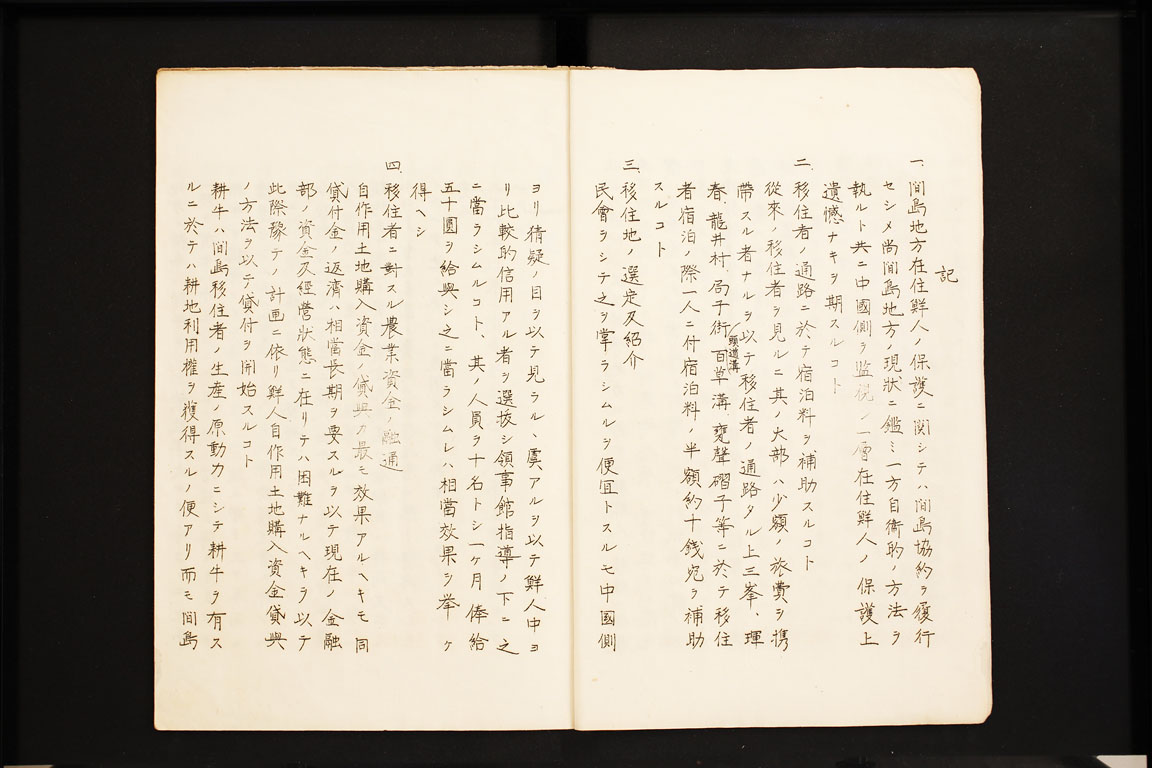 記
一、間島地方在住鮮人ノ保護ニ関シテハ間島協約ヲ履行
セシメ尚間島地方ノ現狀ニ鑑ミ一方自衛的ノ方法ヲ
執ルト共ニ中國側ヲ監視シ一層在住鮮人ノ保護上
遺憾ナキヲ期スルコト
二、移住者ノ通路ニ於テ宿泊料ヲ補助スルコト
從来ノ移住者ヲ見ルニ其ノ大部ハ少額ノ旅費ヲ携
帶スル者ナルヲ以テ移住者ノ通路タル上三峯、琿
春、龍井村、局子街、頭道溝、百草溝、甕聲磖子等ニ於テ移住
者宿泊ノ際一人ニ付宿泊料ノ半額約十錢宛ヲ補助
スルコト
三、移住地ノ選定及紹介
民會ヲシテ之ヲ掌ラシムルヲ便宜トスルモ中國側
ヨリ猜疑ノ目ヲ以テ見ラルヽ虞アルヲ以テ鮮人中ヨ
リ比較的信用アル者ヲ選抜シ領事館指導ノ下ニ之
ニ當ラシムルコト、其ノ人員ヲ十名トシ一ヶ月俸給
五十圓ヲ給與シ之ニ當ラシムレハ相當效果ヲ挙ケ
得ヘシ
四、移住者ニ對スル農業資金ノ融通
自作用土地購入資金ノ貸與カ最モ效果アルヘキモ同
貸付金ノ返濟ハ相當長期ヲ要スルヲ以テ現在ノ金融
部ノ資金及經營狀態ニ在リテハ困難ナルヘキヲ以テ
此際豫テノ計画ニ依リ鮮人自作用土地購入資金貸與
ノ方法ヲ以テ貸付ヲ開始スルコト
耕牛ハ間島移住者ノ生産ノ原動力ニシテ耕牛ヲ有ス
ルニ於テハ耕地利用權ヲ獲得スルノ便アリ而モ間島